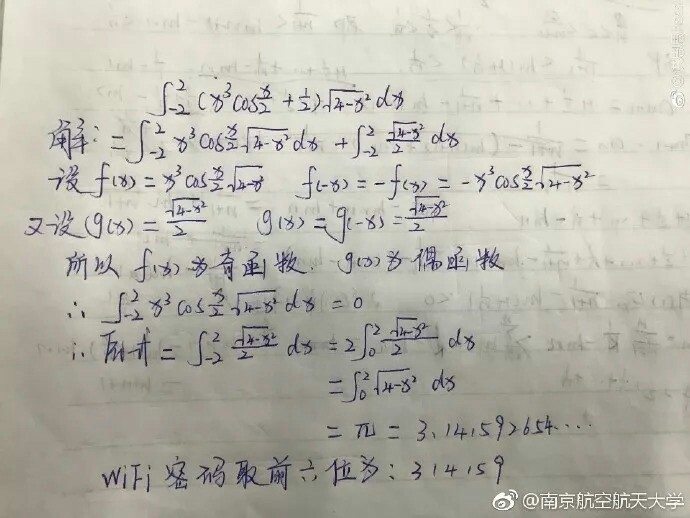 ∫₋₂² (x³cos x/2 + 1/2)√4-x² dx
解: = ∫₋₂² x³cos x/2 √4-x² dx + ∫₋₂² √4-x²/2 dx
设 f(x) = x³cos x/2 √4-x² f(-x) = -f(x) = -x³cos x/2 √4-x²
又设 g(x) = √4-x²/2 g(x) = g(-x) = √4-x²/2
所以 f(x)为奇函数. g(x)为偶函数
∴ ∫₋₂² x³cos x/2 √4-x² dx = 0
∴ 原式 = ∫₋₂² √4-x²/2 dx = 2∫₀² √4-x²/2 dx
= ∫₀² √4-x² dx
= π = 3.141592654....
WiFi 密码取前六位为: 314159
@南京航空航天大学